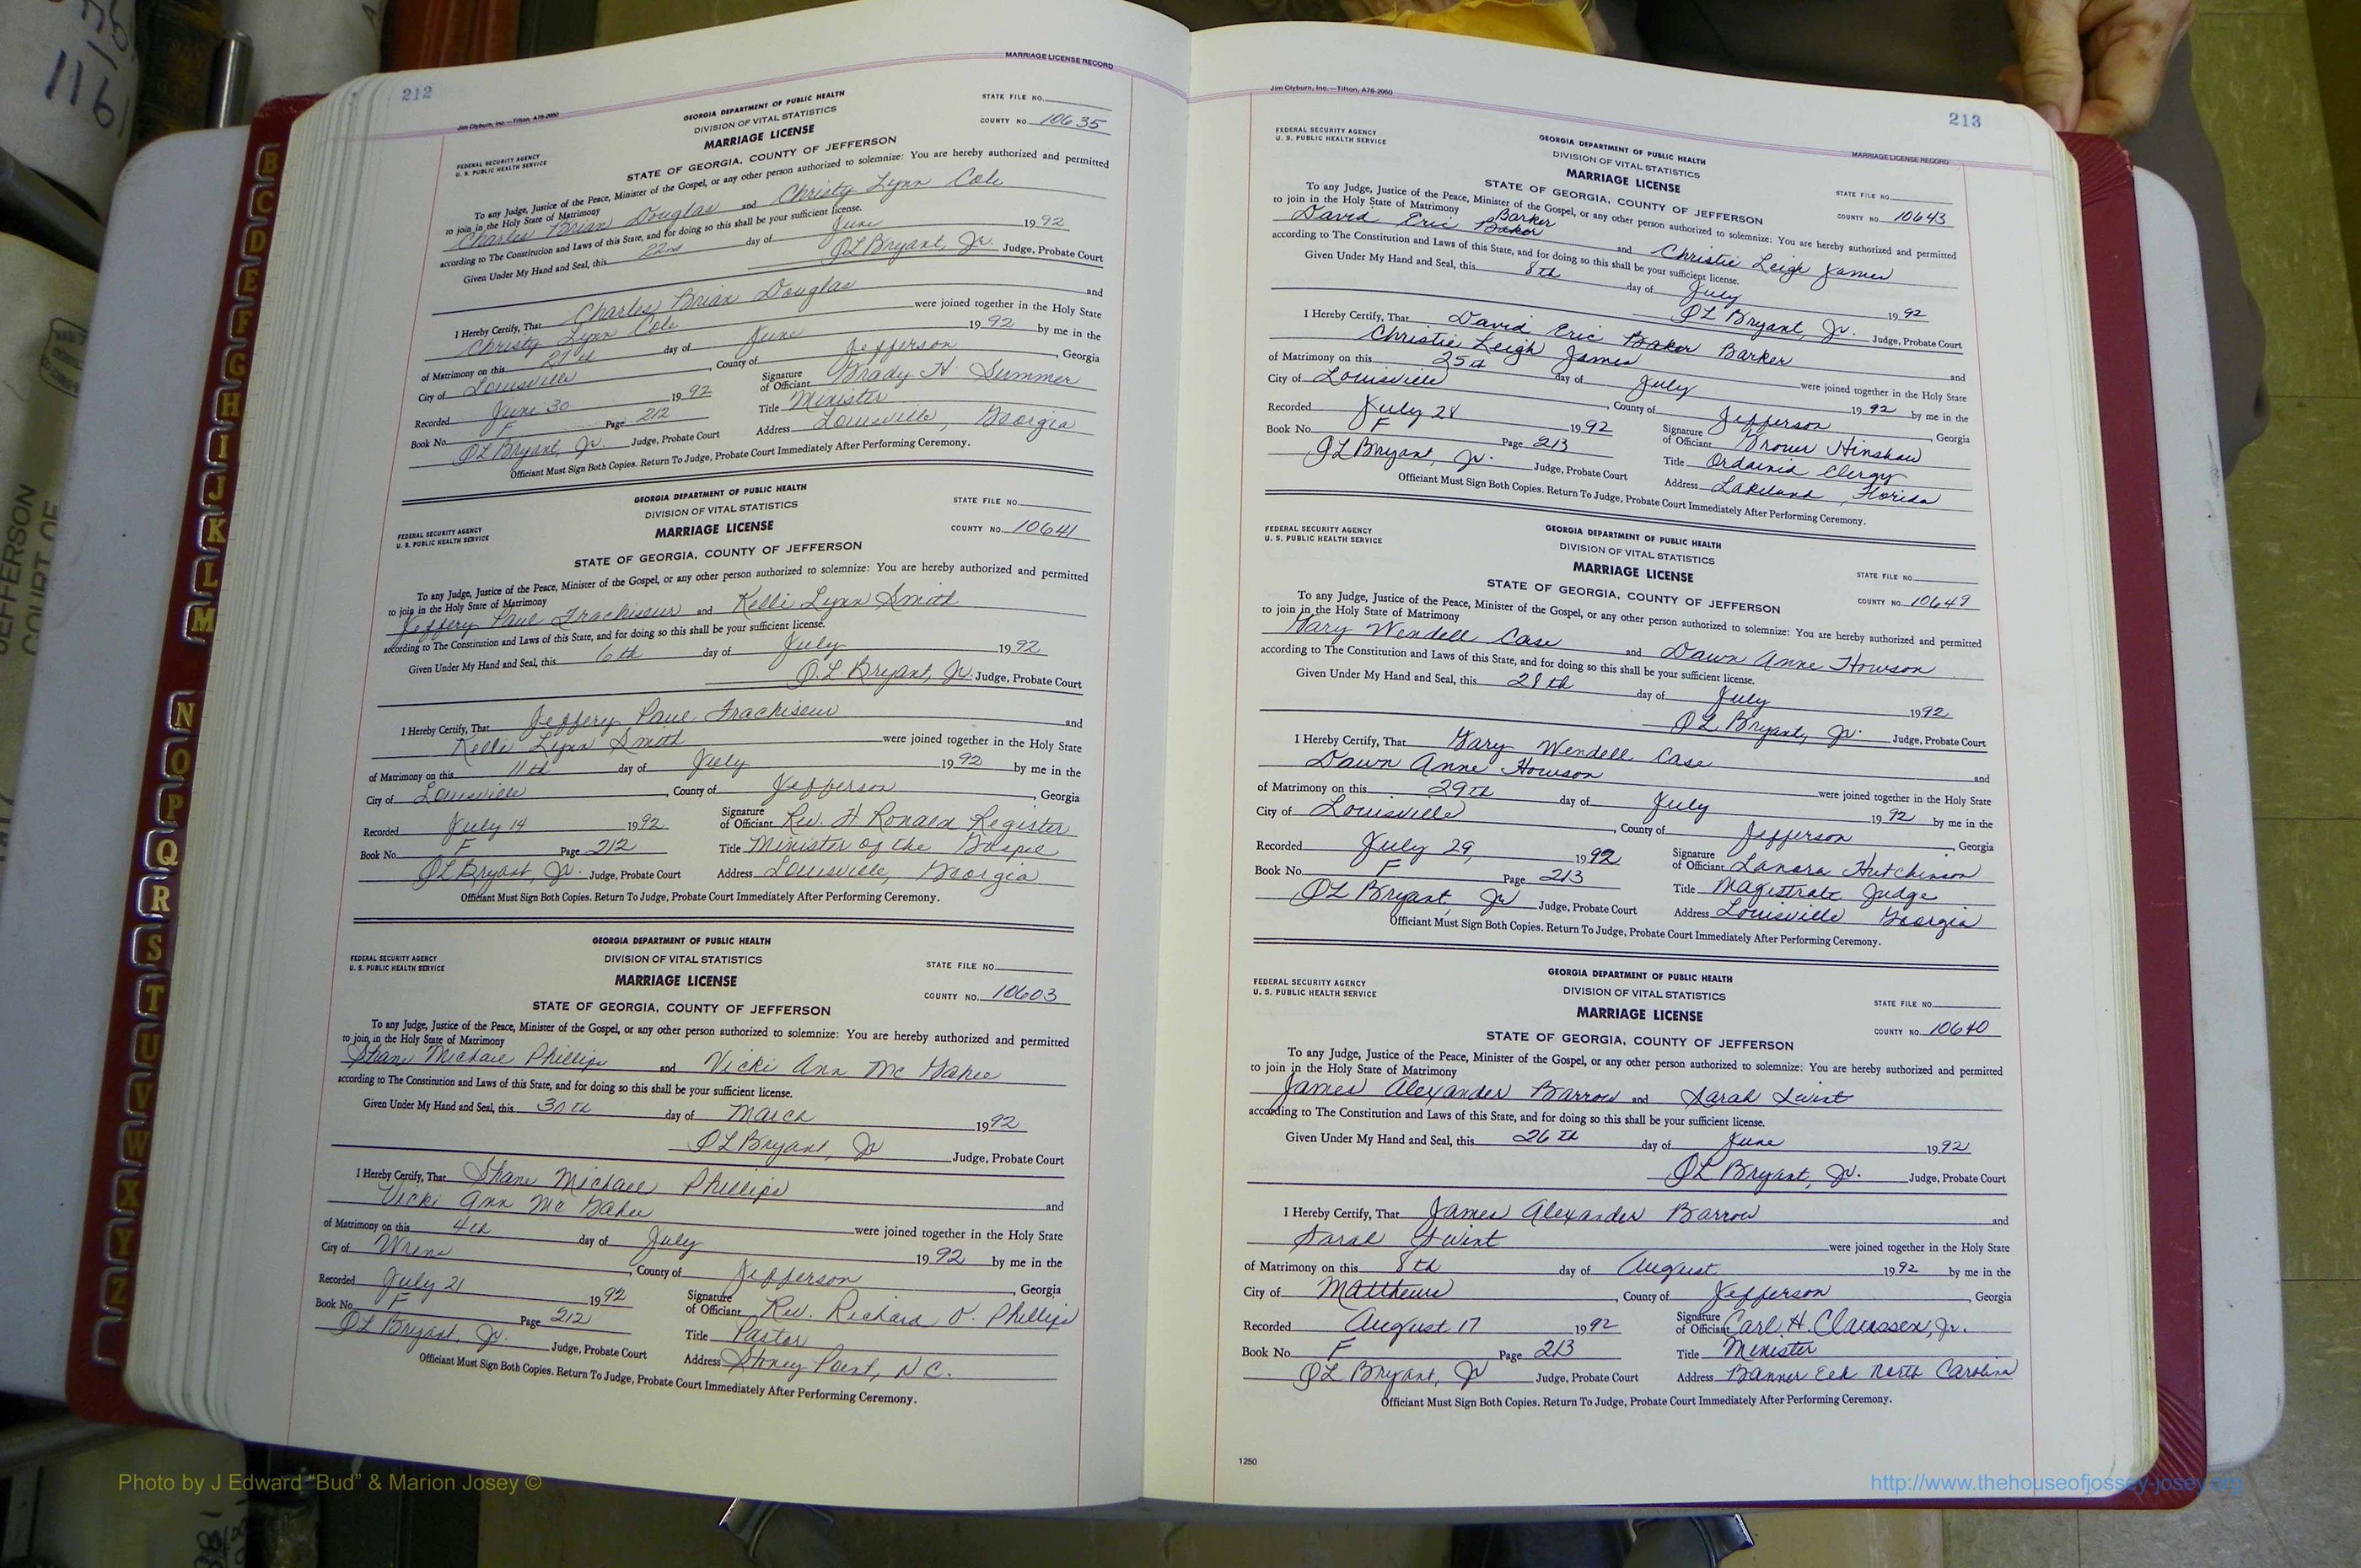 212
MARRIAGE LICENSE RECORD
Jim Clyburn, Inc.—Tifton, A78-2960
GEORGIA DEPARTMENT OF PUBLIC HEALTH
DIVISION OF VITAL STATISTICS
MARRIAGE LICENSE
STATE OF GEORGIA, COUNTY OF JEFFERSON
FEDERAL SECURITY AGENCY
U. S. PUBLIC HEALTH SERVICE
STATE FILE NO.
COUNTY NO. 10635
To any Judge, Justice of the Peace, Minister of the Gospel, or any other person authorized to solemnize: You are hereby authorized and permitted
to join in the Holy State of Matrimony
Charles Brian Douglas and Christy Lynn Cole
according to The Constitution and Laws of this State, and for doing so this shall be your sufficient license.
Given Under My Hand and Seal, this 22nd day of June 1992
QL Bryant, Jr. Judge, Probate Court
I Hereby Certify, That Charles Brian Douglas and
Christy Lynn Cole were joined together in the Holy State
of Matrimony on this day of June 1992 by me in the
City of Louisville, County of Jefferson, Georgia
Recorded June 30 1992 Signature of Officiant Grady H. Summer
Book No. F Page 212 Title Minister
QL Bryant, Jr. Judge, Probate Court Address Louisville, Georgia
Officiant Must Sign Both Copies. Return To Judge, Probate Court Immediately After Performing Ceremony.
GEORGIA DEPARTMENT OF PUBLIC HEALTH
DIVISION OF VITAL STATISTICS
MARRIAGE LICENSE
STATE OF GEORGIA, COUNTY OF JEFFERSON
FEDERAL SECURITY AGENCY
U. S. PUBLIC HEALTH SERVICE
STATE FILE NO.
COUNTY NO. 10641
To any Judge, Justice of the Peace, Minister of the Gospel, or any other person authorized to solemnize: You are hereby authorized and permitted
to join in the Holy State of Matrimony
Jeffery Paul Frachiseur and Kelli Lynn Smith
according to The Constitution and Laws of this State, and for doing so this shall be your sufficient license.
Given Under My Hand and Seal, this 6th day of July 1992
Q.L. Bryant, Jr. Judge, Probate Court
I Hereby Certify, That Jeffery Paul Frachiseur and
Kelli Lynn Smith were joined together in the Holy State
of Matrimony on this 11th day of July 1992 by me in the
City of Louisville, County of Jefferson, Georgia
Recorded July 14 1992 Signature of Officiant Rev. H Ronald Register
Book No. F Page 212 Title Minister of the Gospel
QL Bryant, Jr. Judge, Probate Court Address Louisville, Georgia
Officiant Must Sign Both Copies. Return To Judge, Probate Court Immediately After Performing Ceremony.
GEORGIA DEPARTMENT OF PUBLIC HEALTH
DIVISION OF VITAL STATISTICS
MARRIAGE LICENSE
STATE OF GEORGIA, COUNTY OF JEFFERSON
FEDERAL SECURITY AGENCY
U. S. PUBLIC HEALTH SERVICE
STATE FILE NO.
COUNTY NO. 10603
To any Judge, Justice of the Peace, Minister of the Gospel, or any other person authorized to solemnize: You are hereby authorized and permitted
to join in the Holy State of Matrimony
Shane Michael Phillips and Vicki Ann Mc Gahee
according to The Constitution and Laws of this State, and for doing so this shall be your sufficient license.
Given Under My Hand and Seal, this 30th day of March 1992
QL Bryant, Jr Judge, Probate Court
I Hereby Certify, That Shane Michael Phillips and
Vicki Ann Mc Gahee were joined together in the Holy State
of Matrimony on this 4th day of July 1992 by me in the
City of Wrens, County of Jefferson, Georgia
Recorded July 21 1992 Signature of Officiant Rev. Richard O. Phillips
Book No. F Page 212 Title Pastor
QL Bryant, Jr. Judge, Probate Court Address Stoney Point, N.C.
Officiant Must Sign Both Copies. Return To Judge, Probate Court Immediately After Performing Ceremony.
213
Jim Clyburn, Inc.—Tifton, A78-2960
MARRIAGE LICENSE RECORD
GEORGIA DEPARTMENT OF PUBLIC HEALTH
DIVISION OF VITAL STATISTICS
MARRIAGE LICENSE
STATE OF GEORGIA, COUNTY OF JEFFERSON
FEDERAL SECURITY AGENCY
U. S. PUBLIC HEALTH SERVICE
STATE FILE NO.
COUNTY NO. 10643
To any Judge, Justice of the Peace, Minister of the Gospel, or any other person authorized to solemnize: You are hereby authorized and permitted
to join in the Holy State of Matrimony
David Eric Baker Barker and Christie Leigh James
according to The Constitution and Laws of this State, and for doing so this shall be your sufficient license.
Given Under My Hand and Seal, this 8th day of July 1992
QL Bryant, Jr. Judge, Probate Court
I Hereby Certify, That David Eric Baker Barker and
Christie Leigh James were joined together in the Holy State
of Matrimony on this 25th day of July 1992 by me in the
City of Louisville, County of Jefferson, Georgia
Recorded July 28 1992 Signature of Officiant Hinshaw
Book No. F Page 213 Title Ordained Clergy
QL Bryant, Jr. Judge, Probate Court Address Lakeland, Florida
Officiant Must Sign Both Copies. Return To Judge, Probate Court Immediately After Performing Ceremony.
GEORGIA DEPARTMENT OF PUBLIC HEALTH
DIVISION OF VITAL STATISTICS
MARRIAGE LICENSE
STATE OF GEORGIA, COUNTY OF JEFFERSON
FEDERAL SECURITY AGENCY
U. S. PUBLIC HEALTH SERVICE
STATE FILE NO.
COUNTY NO. 10649
To any Judge, Justice of the Peace, Minister of the Gospel, or any other person authorized to solemnize: You are hereby authorized and permitted
to join in the Holy State of Matrimony
Gary Wendell Case and Dawn Anne Howson
according to The Constitution and Laws of this State, and for doing so this shall be your sufficient license.
Given Under My Hand and Seal, this 28th day of July 1992
QL Bryant, Jr. Judge, Probate Court
I Hereby Certify, That Gary Wendell Case and
Dawn Anne Howson were joined together in the Holy State
of Matrimony on this 29th day of July 1992 by me in the
City of Louisville, County of Jefferson, Georgia
Recorded July 29, 1992 Signature of Officiant Lanora Hutchinson
Book No. F Page 213 Title Magistrate Judge
QL Bryant, Jr Judge, Probate Court Address Louisville Georgia
Officiant Must Sign Both Copies. Return To Judge, Probate Court Immediately After Performing Ceremony.
GEORGIA DEPARTMENT OF PUBLIC HEALTH
DIVISION OF VITAL STATISTICS
MARRIAGE LICENSE
STATE OF GEORGIA, COUNTY OF JEFFERSON
FEDERAL SECURITY AGENCY
U. S. PUBLIC HEALTH SERVICE
STATE FILE NO.
COUNTY NO. 10640
To any Judge, Justice of the Peace, Minister of the Gospel, or any other person authorized to solemnize: You are hereby authorized and permitted
to join in the Holy State of Matrimony
James Alexander Barrow and Sarah Swint
according to The Constitution and Laws of this State, and for doing so this shall be your sufficient license.
Given Under My Hand and Seal, this 26th day of June 1992
QL Bryant, Jr. Judge, Probate Court
I Hereby Certify, That James Alexander Barrow and
Sarah Swint were joined together in the Holy State
of Matrimony on this 8th day of August 1992 by me in the
City of Matthews, County of Jefferson, Georgia
Recorded August 17 1992 Signature of Officiant Carl H. Claussen, Jr.
Book No. F Page 213 Title Minister
QL Bryant, Jr Judge, Probate Court Address Banner Elk North Carolina
Officiant Must Sign Both Copies. Return To Judge, Probate Court Immediately After Performing Ceremony.
1250
B
C
D
E
F
G
H
I
J
K
L
M
N
O
P
Q
R
S
T
U
V
W
X
Y
Z
116
JEFFERSON
COURT OF
Photo by J Edward “Bud” & Marion Josey ©
http://www.thehouseofjossey-josey.org